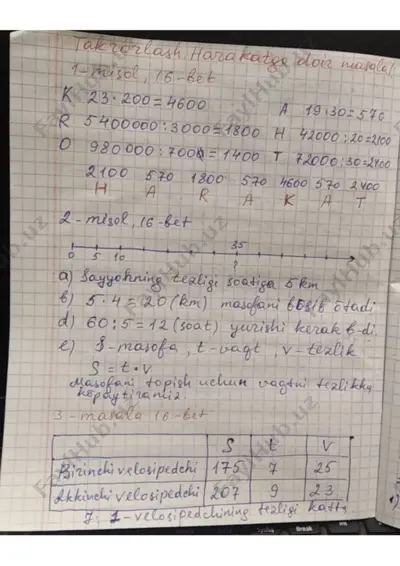 Takrorlash. Harakatga doir masalal
1-misol, 16-bet
K 23·200=4600 A 19·30=570
R 5400000:3000=1800 H 42000:20=2100
O 980000:700=1400 T 72000:30=2400
2100 570 1800 570 4600 570 2400
H A R A K A T
2-misol, 16-bet
0 5 10 35
?
a) Sayyohning tezligi soatiga 5 km
b) 5·4=20 (km) masofani bosib o'tadi
d) 60:5=12 (soat) yurishi kerak b-di.
e) S-masofa, t-vaqt, v-tezlik
S=t·v
Masofani topish uchun vaqtni tezlikka
ko'paytiramiz.
3-masala 16-bet
S t V
Birinchi velosipedchi 175 7 25
Ikkinchi velosipedchi 207 9 23
J: 1-velosipedchining tezligi katta
FaylHub.uz